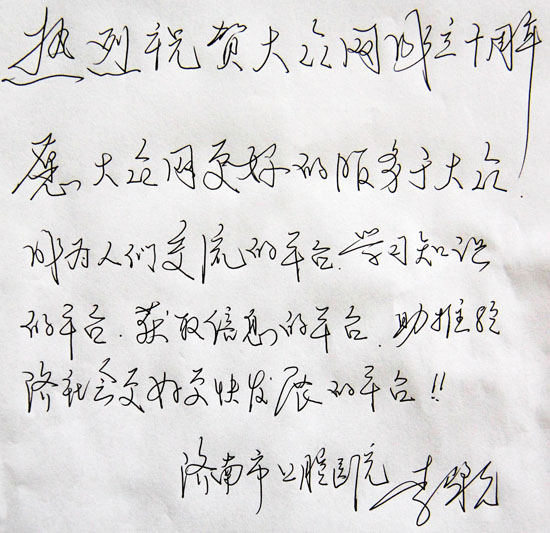 热烈祝贺大众网成立十周年
愿大众网更好的服务于大众.
成为人们交流的平台.学习知识
的平台.获取信息的平台.助推经
济社会更好更快发展的平台!!
济南市口腔医院 李